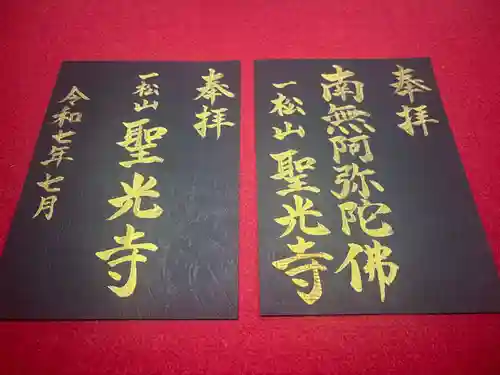 奉拝
南無阿弥陀佛
一松山 聖光寺
奉拝
一松山 聖光寺
令和七年七月